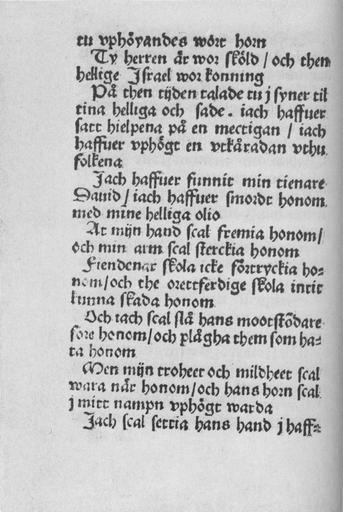 tu vphöyandes wórt horn
Ty herren är wor sköld / och then
hellige Israel wor konning
På then tijden talade tu j syner til
tina helliga och sade. iach haffuer
satt hielpena på en mectigan / iach
haffuer vphögt en vtkäradan vthu
folkena
Jach haffuer funnit min tienare
Dauid / iach haffuer smordt honom
med mine helliga olio
At mijn hand scal fremia honom/
och min arm scal sterckia honom
Fiendenar skola icke förtryckia ho-
nom/och the orettferdige skola intit
kunna skada honom
Och iach scal slå hans mootstödare
före honom/och plågha them som ha-
ta honom
Men mijn troheet och mildheet scal
wara når honom/och hans horn scal
j mitt nampn vphögt warda
Jach scal settia hans hand j haff-